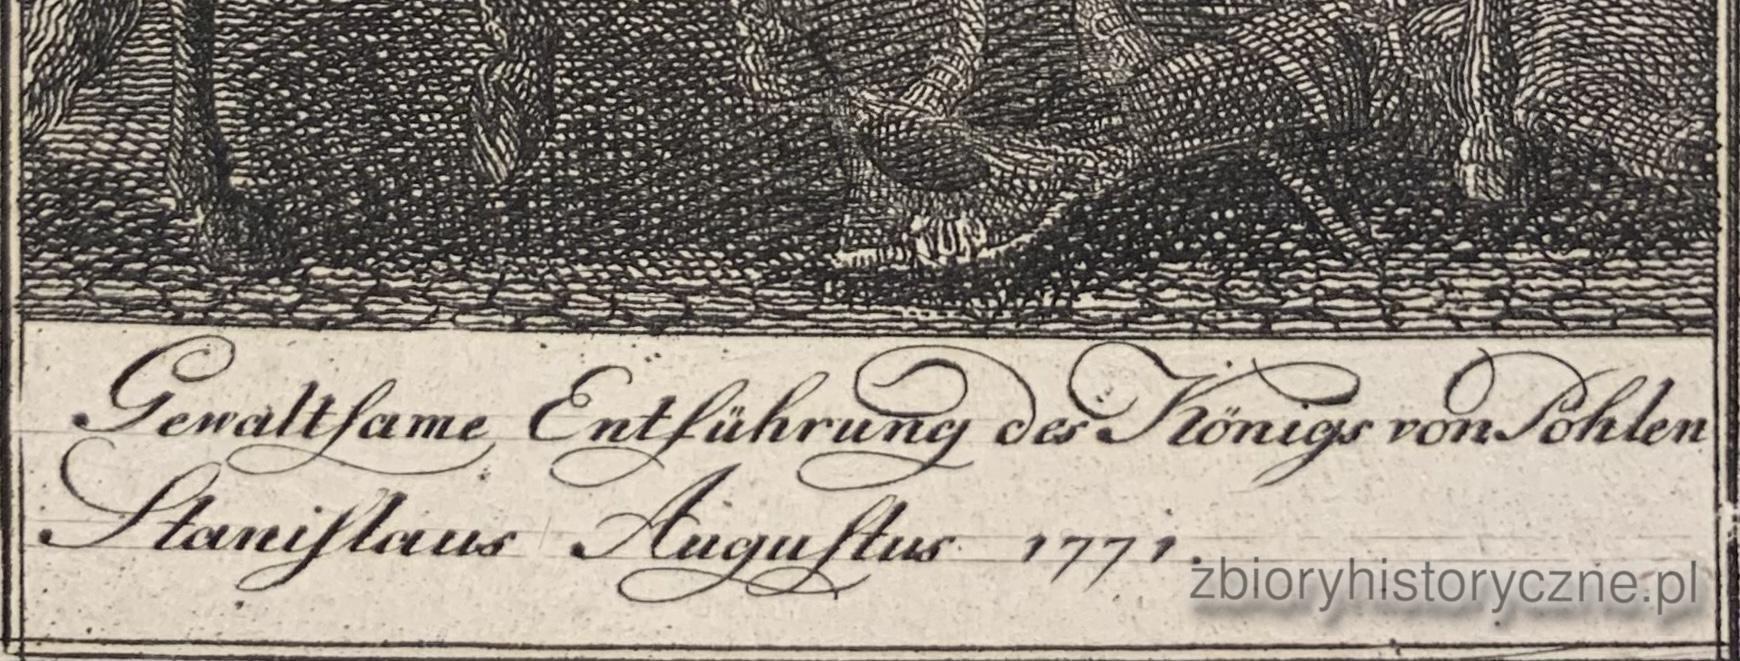 Gewaltſame Entführung des Königs von Pohlen
Staniſlaus Auguſtus 1771.
zbioryhistoryczne.pl